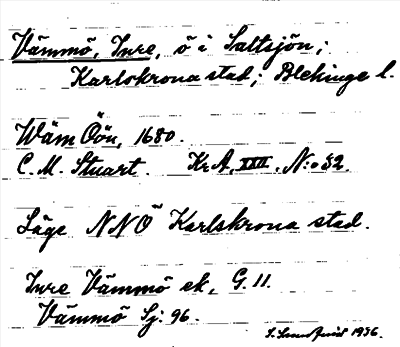 Vämmö, Inre, ö i Saltsjön;
Karlskrona stad; Blekinge l.
Wäm Öön, 1680.
C. M. Stuart. Kr A, XXII, N:o 52.
Läge NNÖ Karlskrona stad.
Inre Vämmö ek, G. 11.
Vämmö Sj: 96.
1936.